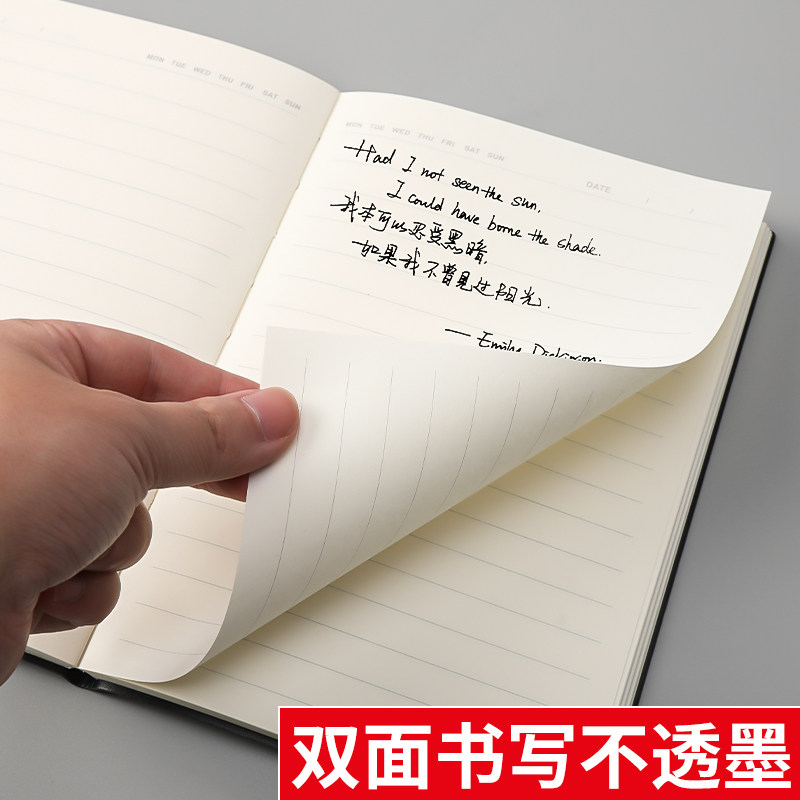 MON TUE WED THU FRI SAT SUN
MON TUE WED THU FRI SAT SUN
DATE / /
Had I not seen the sun,
I could have borne the shade.
我本可以忍受黑暗,
如果我不曾见过阳光.
— Emily Dickinson.
双面书写不透墨